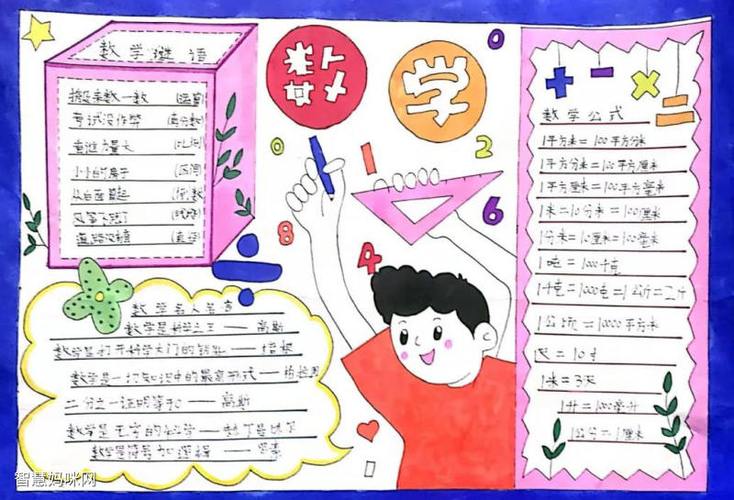 数学谜语
搬来数一数
考试没作弊 (真分数)
谁的力量大
小小的房子 (区间)
从后面算起 (倒数)
风筝飞跑了
道路没弯 (直径)
数学
0
1
2
6
8
4
+ - × =
÷
数学名人名言
数学是科学之王——高斯
数学是打开科学大门的钥匙——培根
数学是一切知识中的最高形式——柏拉图
二分之一证明等于0——高斯
数学是无穷的科学——赫尔曼外尔
数学是符号加逻辑——罗素
数学公式
1平方米=100平方分米
1平方分米=100平方厘米
1平方厘米=100平方毫米
1米=10分米=100厘米
1分米=10厘米=100毫米
1吨=1000千克
1千克=1000克=1公斤=2斤
1公顷=10000平方米
1丈=10寸
1米=3尺
1升=1000毫升
1公分=1厘米
智慧妈咪网